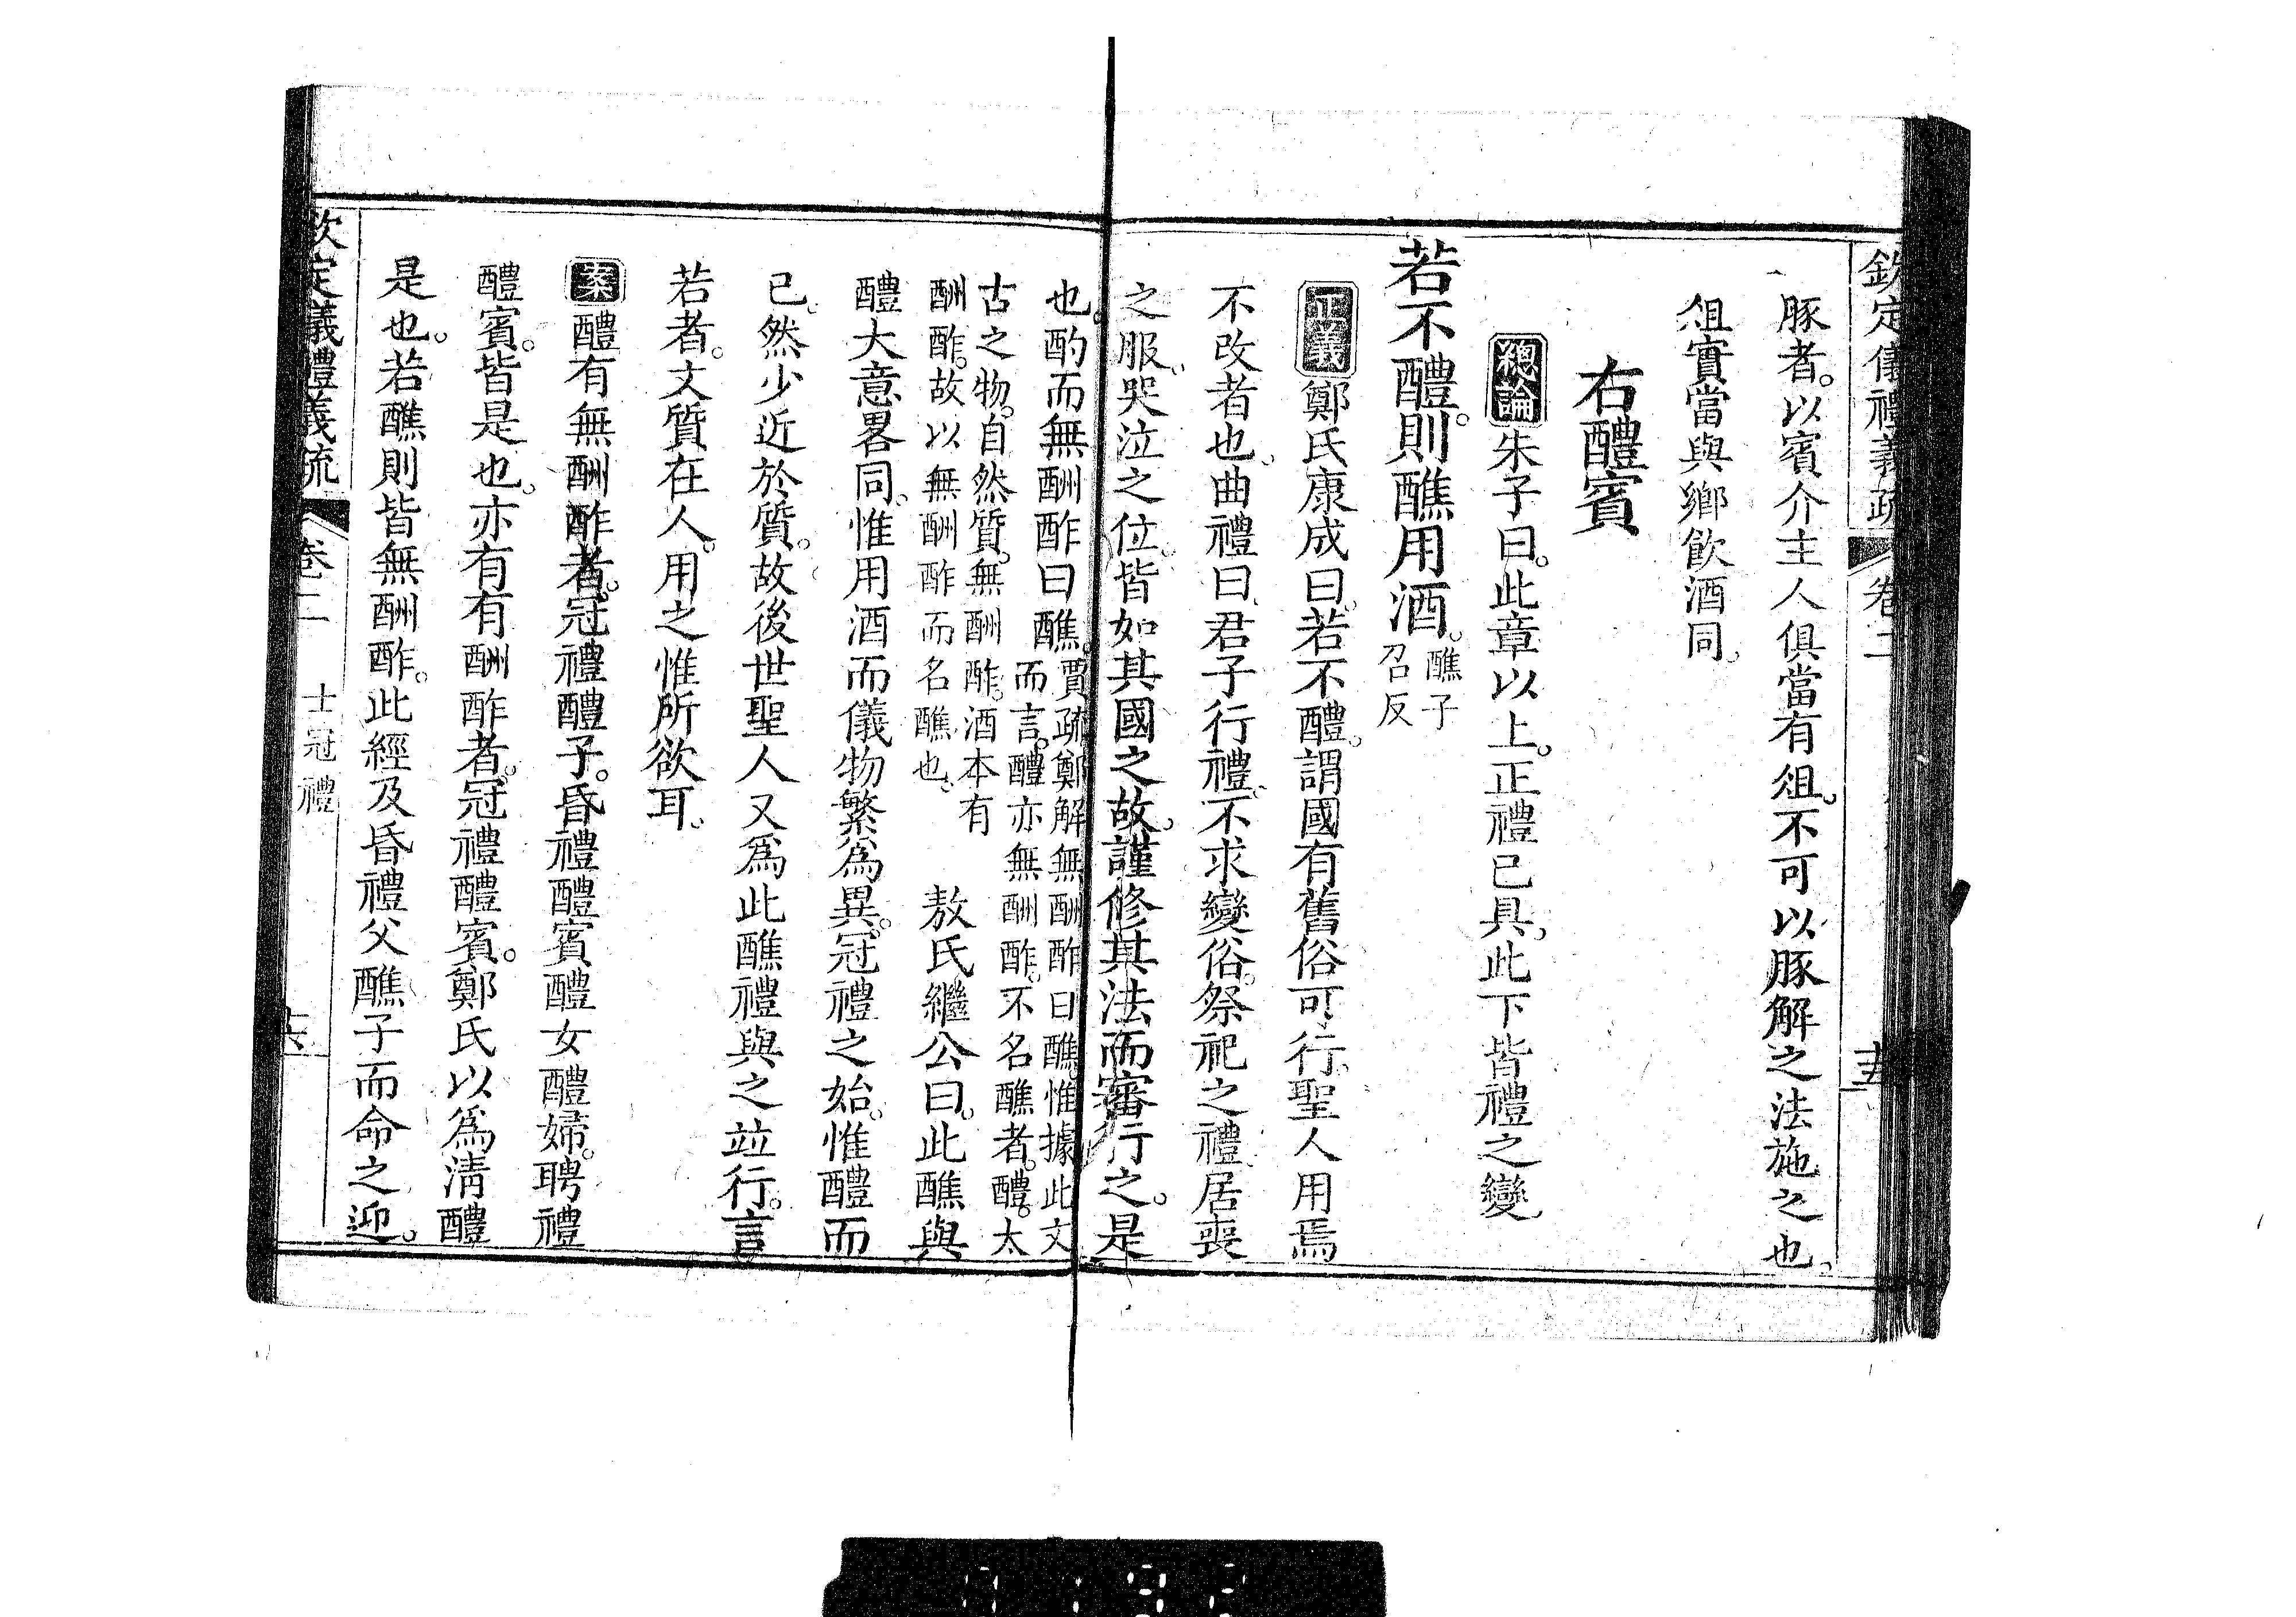 欽定儀禮義疏 卷二 十五
豚者。以賓介主人俱當有俎。不可以豚解之法施之也。
俎實當與鄉飲酒同。
右醴賓
總論 朱子曰。此章以上。正禮已具。此下皆禮之變。
若不醴。則醮用酒。醮子召反
正義 鄭氏康成曰。若不醴。謂國有舊俗可行。聖人用焉
不改者也。曲禮曰。君子行禮。不求變俗。祭祀之禮。居喪
之服。哭泣之位。皆如其國之故。謹修其法而審行之。是
也。酌而無酬酢曰醮。賈疏。鄭解無酬酢曰醮。惟據此文
而言。醴亦無酬酢。不名醮者。醴。太
古之物。自然質。無酬酢。酒本有
酬酢。故以無酬酢而名醮也。 敖氏繼公曰。此醮與
醴大意畧同。惟用酒而儀物繁爲異。冠禮之始。惟醴而
已。然少近於質。故後世聖人又爲此醮禮與之竝行。言
若者。文質在人。用之惟所欲耳。
案 醴有無酬酢者。冠禮醴子。昏禮醴賓醴女醴婦。聘禮
醴賓。皆是也。亦有有酬酢者。冠禮醴賓。鄭氏以爲淸醴
是也。若醮則皆無酬酢。此經及昏禮父醮子而命之迎。
欽定儀禮義疏 卷二 士冠禮 十六